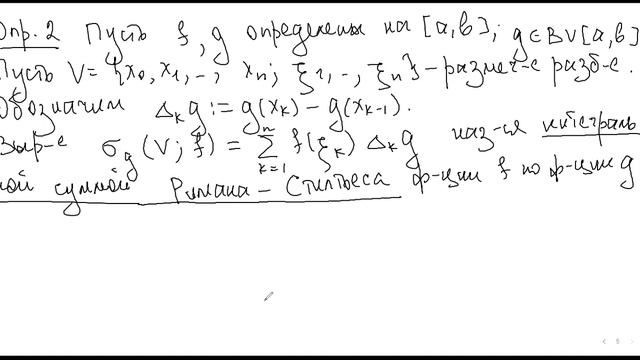 Опр. 2 Пусть f, g определены на [a,b]; g∈BV[a,b]
Пусть V={x₀, x₁, .., xₙ; ξ₁, .., ξₙ} – размеч-е разб-е.
Обозначим Δₖg := g(xₖ) – g(xₖ₋₁).
Выр-е σ_g(V; f) = ∑ₖ₌₁ⁿ f(ξₖ) Δₖg наз-ся интеграль
ной суммой Римана – Стилтьеса ф-ции f по ф-ции g
5